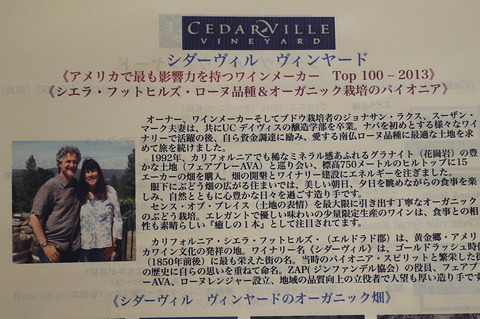 CEDARVILLE
VINEYARD
シダーヴィル　ヴィンヤード
《アメリカで最も影響力を持つワインメーカー　Top 100 – 2013》
《シエラ・フットヒルズ・ローヌ品種＆オーガニック栽培のパイオニア》
オーナー、ワインメーカーそしてブドウ栽培者のジョナサン・ラクス、スーザン・
マーク夫妻は、共にUC デイヴィスの醸造学部を卒業。ナパを初めとする様々なワイ
ナリーで活躍の後、自ら資金調達に励み、愛する南仏ローヌ品種に最適な土地を求
めて旅を続けました。
1992年、カリフォルニアでも稀なミネラル感あふれるグラナイト（花崗岩）の豊
かな土地（フェアプレーAVA）と巡り会い、標高750メートルのヒルトップに15
エーカーの畑を購入。畑の開墾とワイナリー建設にエネルギーを注ぎました。
眼下にぶどう畑の広がる住まいでは、美しい朝日、夕日を眺めながらの食事を楽
しみ、自然とともに心豊かな日々を過ごす造り手です。
センス・オブ・プレイス（土地の表情）を最大限に引き出す丁寧なオーガニック
のぶどう栽培。エレガントで優しい味わいの少量限定生産のワインは、食事との相
性も素晴らしい「癒しの１本」として注目されてます。
カリフォルニア・シエラ・フットヒルズ・（エルドラド郡）は、黄金郷・アメリ
カワイン文化の発祥の地。ワイナリー名《シダーヴィル》は、ゴールドラッシュ時代
（1850年前後）に最も栄えた街の名。当時のパイオニア・スピリットと繁栄した街
の歴史に自らの思いを重ねて命名。ZAP（ジンファンデル協会）の役員、フェアプ
レーAVA、ローヌレンジャー設立、地域の品質向上の立役者で人望も厚い造り手です
《シダーヴィル　ヴィンヤードのオーガニック畑》